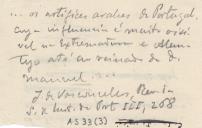 ... os artifices arabes de Portugal,
cuja influencia é muito visi-
vel na Extremadura e Alem-
tejo até ao reinado de D.
Manuel ...
J. de Vasconcelos,
de Port 168
AS 33 (3)